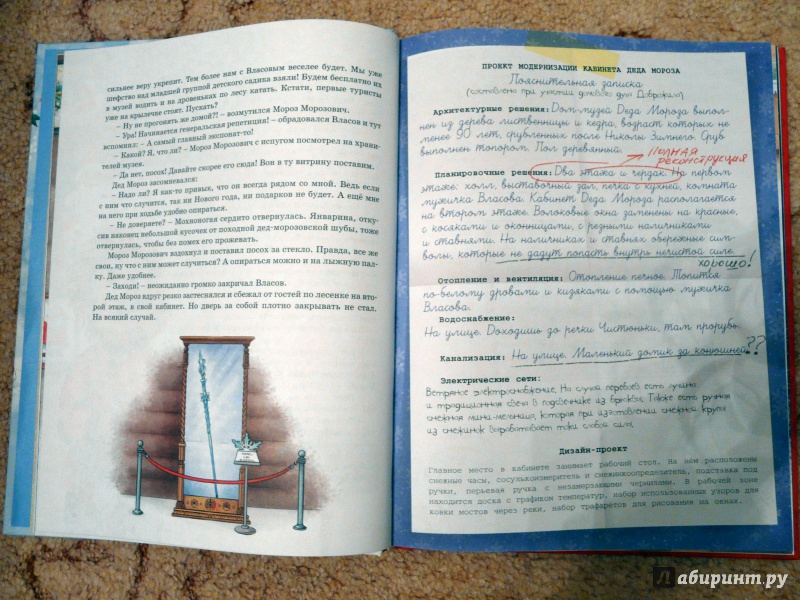 сильнее веру укрепит. Тем более нам с Власовым веселее будет. Мы уже
шефство над младшей группой детского садика взяли! Будем бесплатно их
в музей водить и на дровеньках по лесу катать. Кстати, первые туристы
уже на крылечке стоят. Пускать?
– Ну не прогонять же домой?! – возмутился Мороз Морозович.
– Ура! Начинается генеральная репетиция! – обрадовался Власов и тут
вспомнил: – А самый главный экспонат-то!
– Какой? Я, что ли? – Мороз Морозович с испугом посмотрел на храни-
телей музея.
– Да нет, посох! Давайте скорее его сюда! Вон в ту витрину поставим.
Дед Мороз засомневался:
– Надо ли? Я как-то привык, что он всегда рядом со мной. Ведь если
с ним что случится, так ни Нового года, ни подарков не будет. А ещё мне
на него при ходьбе удобно опираться.
– Не доверяете? – Мохноногая сердито отвернулась. Январина, отку-
сив наконец небольшой кусочек от походной дед-морозовской шубы, тоже
отвернулась, чтобы без помех его прожевать.
Мороз Морозович вздохнул и поставил посох за стекло. Правда, все же
свои, ну что с ним может случиться? А опираться можно и на лыжную пал-
ку. Даже удобнее.
– Заходи! – неожиданно громко закричал Власов.
Дед Мороз вдруг резко застеснялся и сбежал от гостей по лесенке на вто-
рой этаж, в свой кабинет. Но дверь за собой плотно закрывать не стал.
На всякий случай.
ПРОЕКТ МОДЕРНИЗАЦИИ КАБИНЕТА ДЕДА МОРОЗА
Пояснительная записка
(составлено при участии доживого духа Доброжила)
Архитектурные решения: Дом-музей Деда Мороза выпол-
нен из дерева лиственницы и кедра, возраст которых не
менее 90 лет, срубленных после Николы Зимнего. Сруб
выполнен топором. Пол деревянный.
ПОЛНАЯ
РЕКОНСТРУКЦИЯ
Планировочные решения: Два этажа и чердак. На первом
этаже: холл, выставочный зал, печка с кухней, комната
мужичка Власова. Кабинет Деда Мороза располагается
на втором этаже. Волоковые окна заменены на красные,
с косяками и оконницами, с резными наличниками
и ставнями. На наличниках и ставнях обережные сим-
волы, которые не дадут попасть внутрь нечистой силе.
хорошо!
Отопление и вентиляция: Отопление печное. Топится
по-белому дровами и кизяками с помощью мужичка
Власова.
Водоснабжение:
На улице. Доходишь до речки Чистюньки, там прорубь.
Канализация: На улице. Маленький домик за конюшней.??
Электрические сети:
Ветряное электроснабжение. На случай перебоев есть лучина
и традиционная свеча в подсвечнике из брюквы. Также есть ручная
снежная мини-мельница, которая при изготовлении снежной крупы
из снежинок вырабатывает токи слабой силы.
Дизайн-проект
Главное место в кабинете занимает рабочий стол. На нём расположены
снежные часы, сосулькоизмеритель и снежинкоопределитель, подставка под
ручки, перьевая ручка с незамерзающими чернилами. В рабочей зоне
находится доска с графиком температур, набор использованных узоров для
ковки мостов через реки, набор трафаретов для рисования на окнах.
Лабиринт.ру